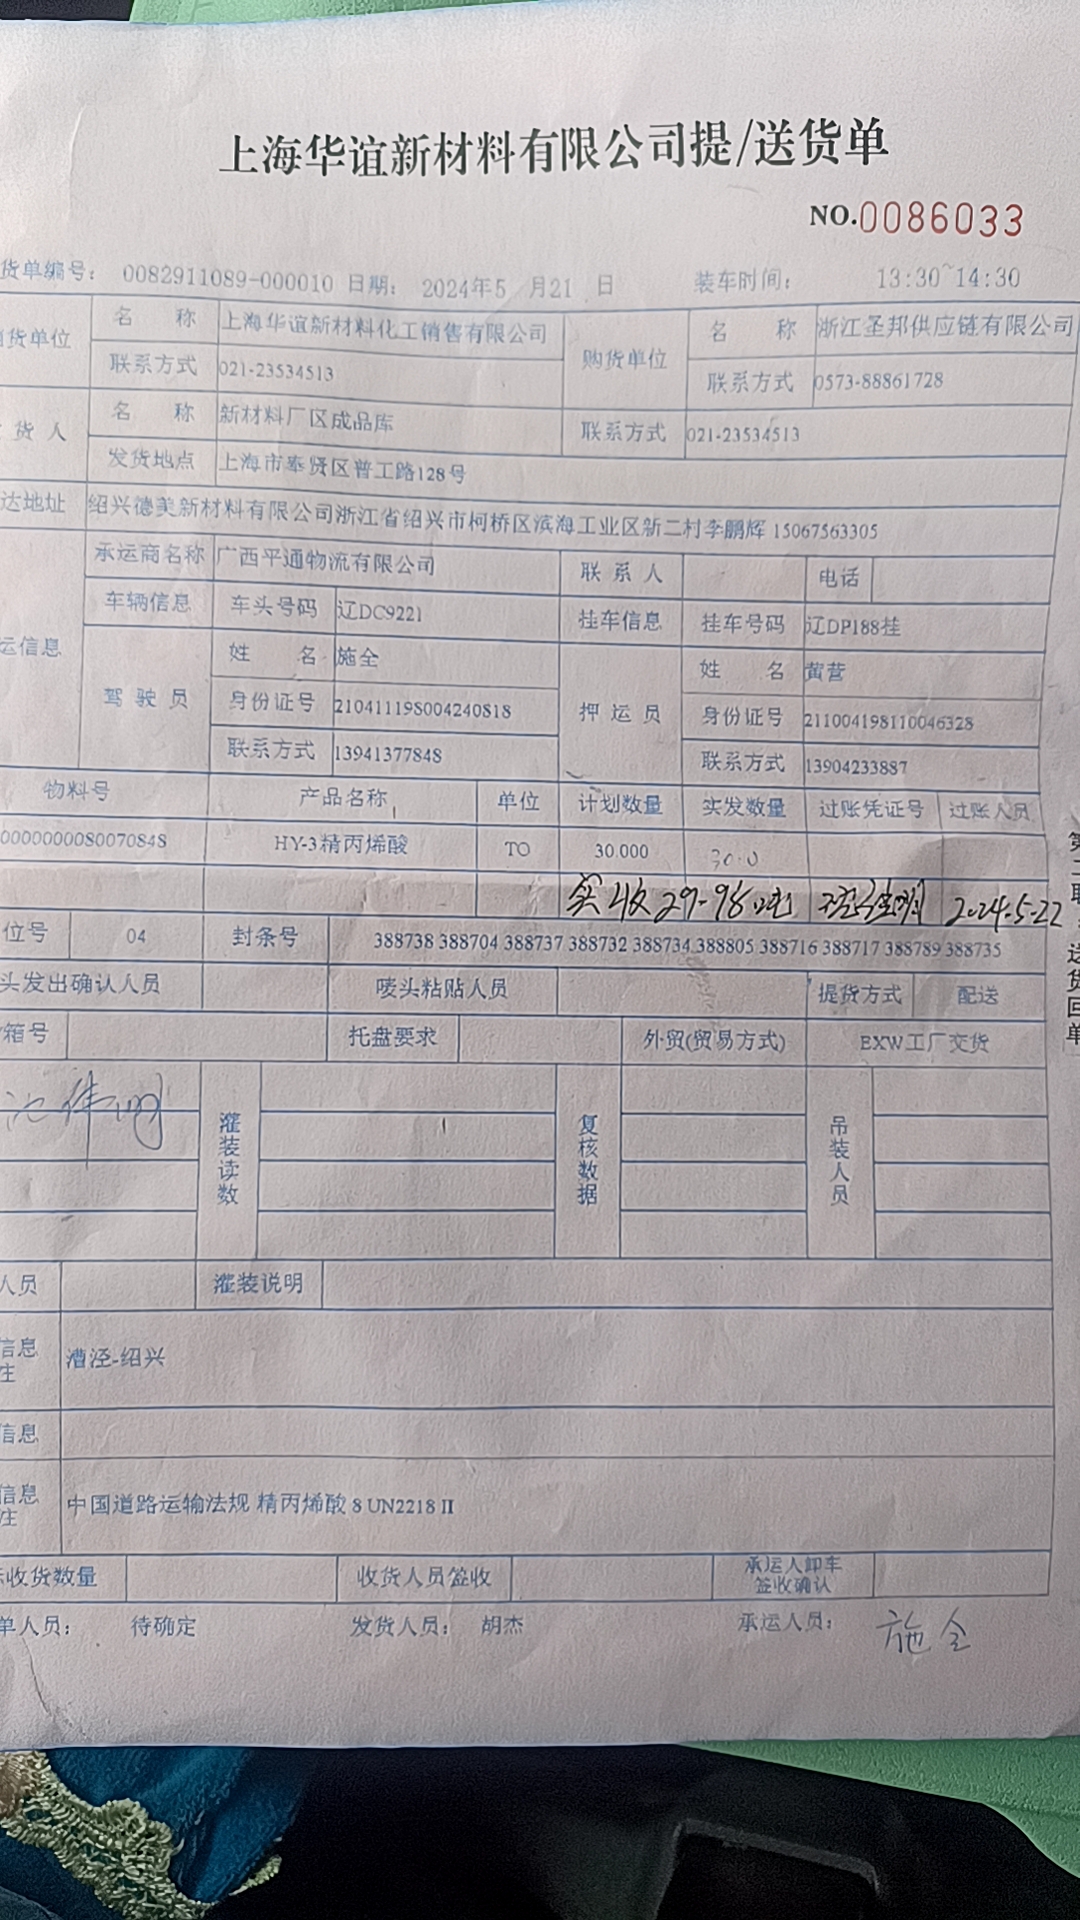 上海华谊新材料有限公司提/送货单
NO.0086033
货单编号： 0082911089-000010 日期： 2024年5 月21 日 装车时间： 13:30~14:30
货单位 名 称 上海华谊新材料化工销售有限公司 购货单位 名 称 浙江圣邦供应链有限公司
联系方式 021-23534513 联系方式 0573-88861728
货 人 名 称 新材料厂区成品库 联系方式 021-23534513
发货地点 上海市奉贤区普工路128号
达地址 绍兴德美新材料有限公司浙江省绍兴市柯桥区滨海工业区新二村李鹏辉 15067563305
运信息 承运商名称 广西平通物流有限公司 联 系 人 电话
车辆信息 车头号码 辽DC9221 挂车信息 挂车号码 辽DP188挂
驾 驶 员 姓 名 施全 押 运 员 姓 名 黄营
身份证号 210411198004240818 身份证号 211004198110046328
联系方式 13941377848 联系方式 13904233887
物料号 产品名称 单位 计划数量 实发数量 过账凭证号 过账人员
000000008007084S HY-3精丙烯酸 TO 30.000 30.0
实收29-98吨 2024.5-22
位号 04 封条号 388738 388704 388737 388732 388734 388805 388716 388717 388789 388735
头发出确认人员 唛头粘贴人员 提货方式 配送
箱号 托盘要求 外贸(贸易方式) EXW工厂交货
灌装读数 复核数据 吊装人员
人员 灌装说明
信息
注 漕泾-绍兴
信息
信息
注 中国道路运输法规 精丙烯酸 8 UN2218 II
收货数量 收货人员签收 承运人卸车
签收确认
单人员： 待确定 发货人员： 胡杰 承运人员： 施全
第二联：送货回单